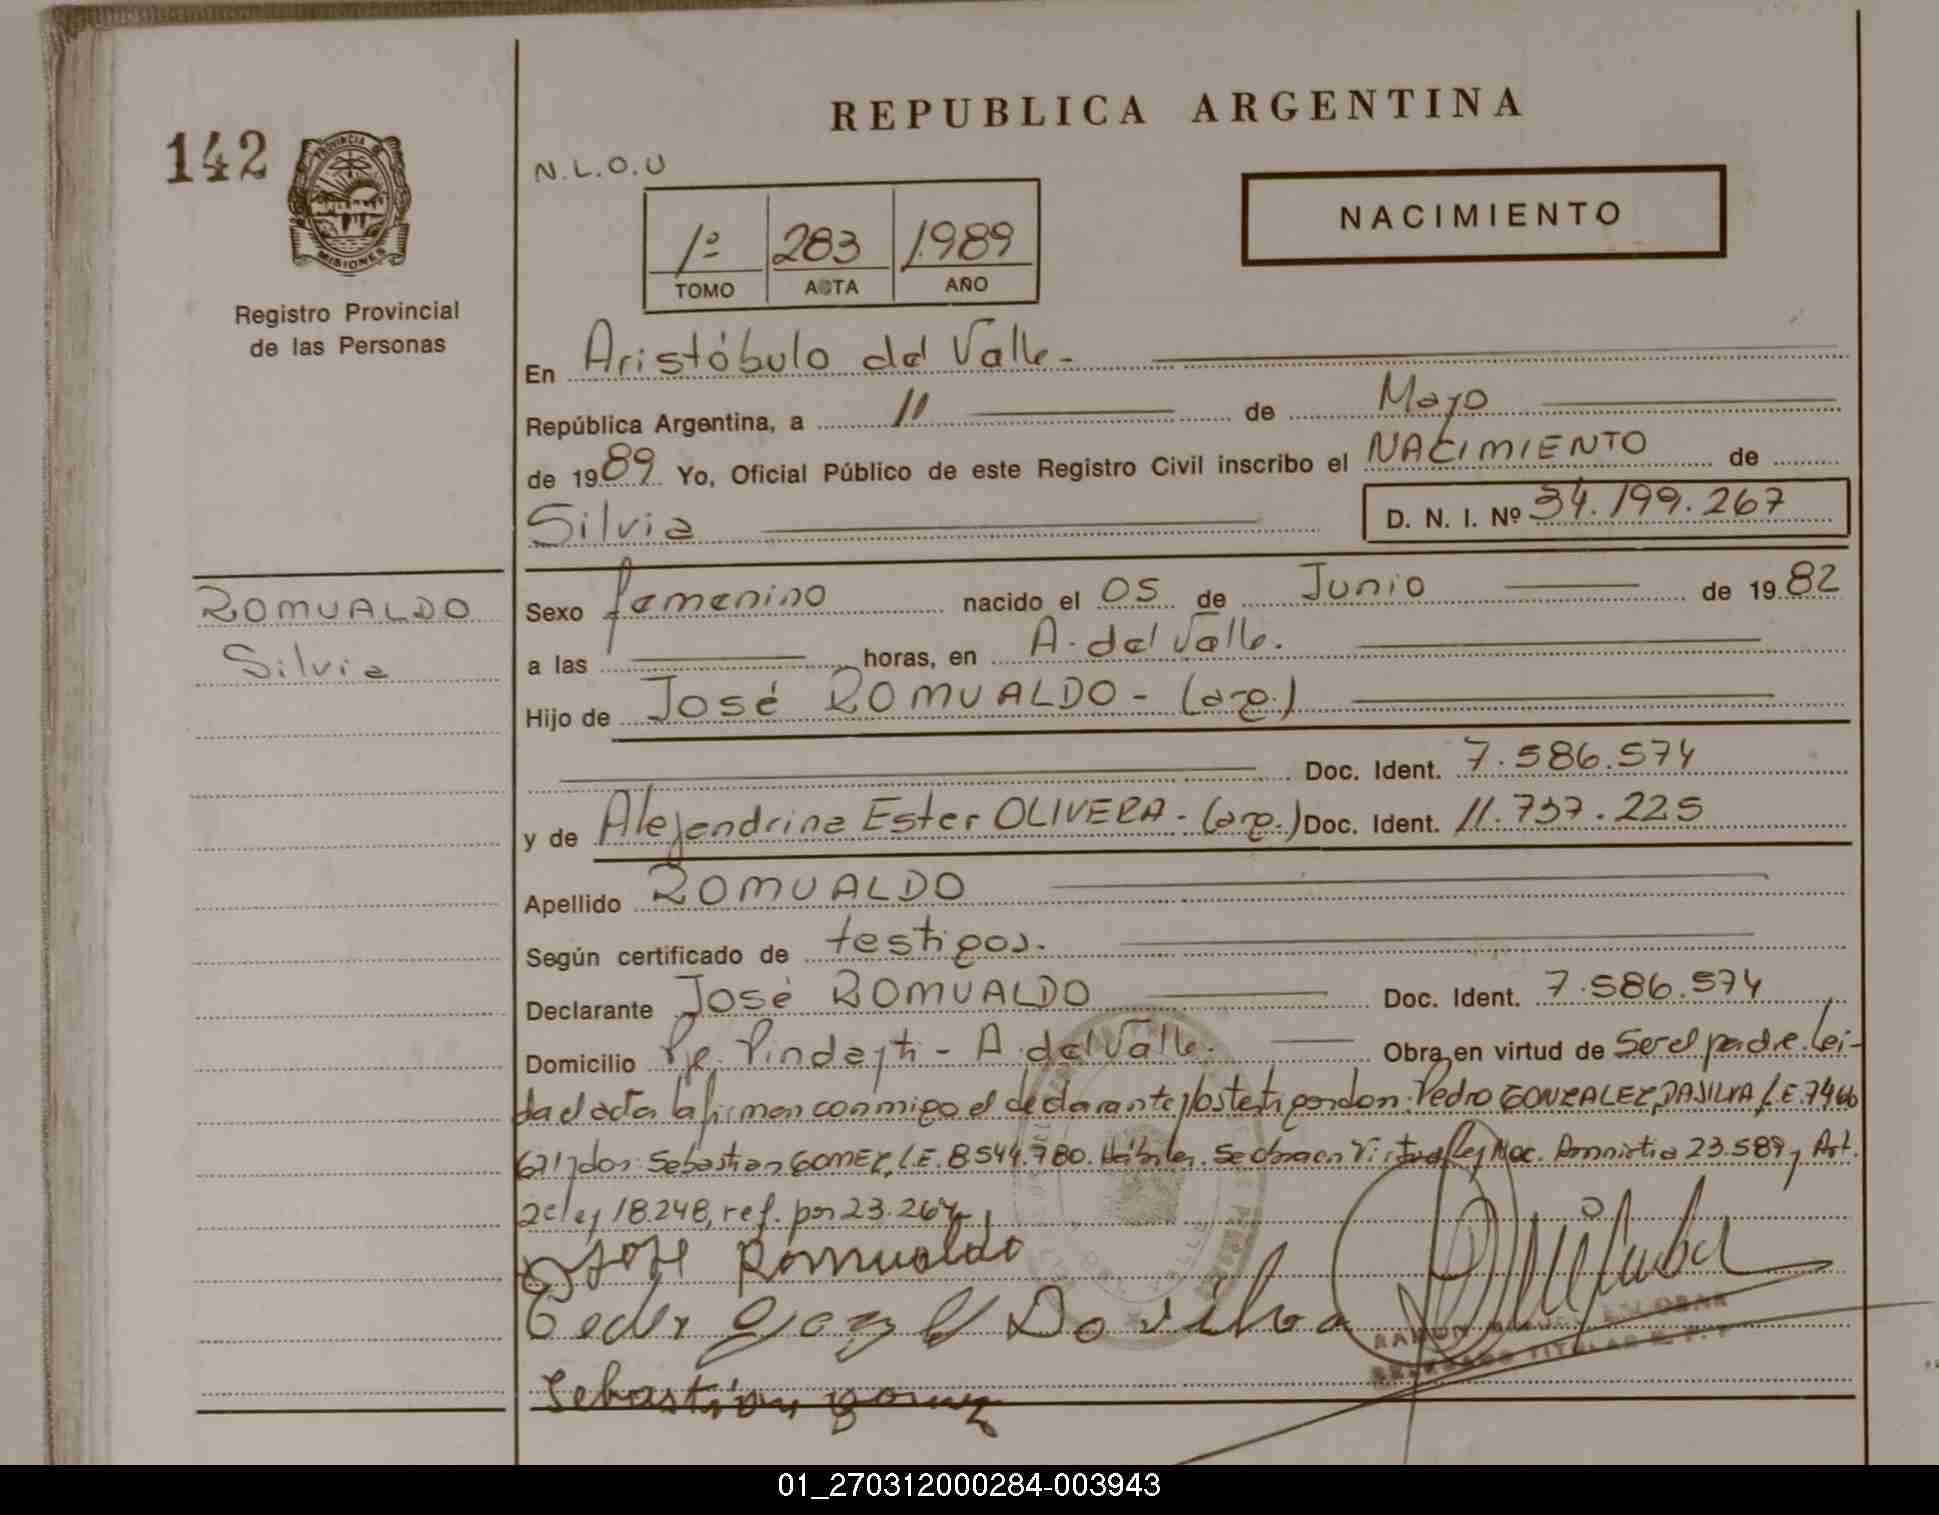 REPUBLICA ARGENTINA
142
PROVINCIA DE
MISIONES
Registro Provincial
de las Personas
N.L.O.U
NACIMIENTO
1º 283 1.989
TOMO ACTA AÑO
En Aristóbulo del Valle.-
República Argentina, a 11 de Mayo
de 1989. Yo, Oficial Público de este Registro Civil inscribo el NACIMIENTO de
Silvia D. N. I. Nº 34.199.267
ROMUALDO
Silvia
Sexo femenino nacido el 05 de Junio de 1982
a las horas, en A. del Valle.
Hijo de José ROMUALDO - (arg.)
Doc. Ident. 7.586.574
y de Alejandrina Ester OLIVERA - (arg.) Doc. Ident. 11.737.225
Apellido ROMUALDO
Según certificado de testigos.
Declarante José ROMUALDO Doc. Ident. 7.586.574
Domicilio Pje. Pindayti - A. del Valle. Obra en virtud de Ser el padre. Lei-
da el acta la firman conmigo el declarante y los testigos don: Pedro GONZALEZ DASILVA, L.E. 7466
671 y don: Sebastian GOMEZ, L.E. 8.544.780. Hábiles. Se obra en Virtud Ley Nac. Amnistia 23.589 y Art.
2º ley 18.248, ref. por 23.264
José Romualdo
Da silva
RAMON MIGUEL ESCOBAR
DELEGADO TITULAR R. P. P.
Sebastián gomez
01_270312000284-003943